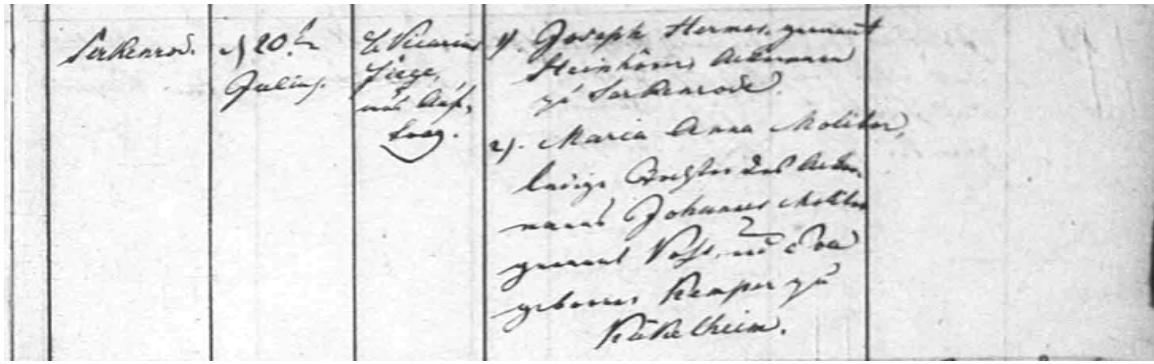 Serkenrod.
d 20ten
Julius.
H Vicarius
Fiege,
aus Auf-
trag.
1). Joseph Hermes, genannt
Steinhöver Ackermann
zu Serkenrode.
2). Maria Anna Molitor,
ledige Tochter des Acker-
manns Johannes Molitor
genannt Voß, und Eva
geborne Kemper zu
Rükelheim.